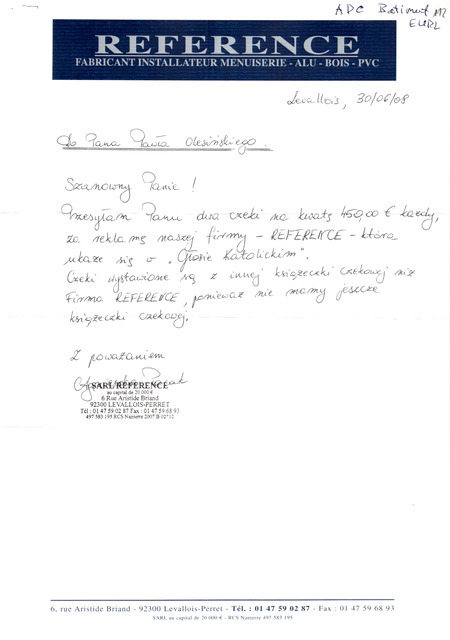 ADC Batiment
EURL
REFERENCE
FABRICANT INSTALLATEUR MENUISERIE - ALU - BOIS - PVC
Levallois, 30/06/08
Do Pana Pawła Olesińskiego.
Szanowny Panie !
Przesyłam Panu dwa czeki na kwotę 450,00 € każdy,
za reklamę naszej firmy - REFERENCE - która
ukaże się w "Głosie Katolickim".
Czeki wystawione są z innej książeczki czekowej niż
Firma REFERENCE, ponieważ nie mamy jeszcze
książeczki czekowej.
Z poważaniem
SARL REFERENCE
au capital de 20 000 €
6 Rue Aristide Briand
92300 LEVALLOIS-PERRET
Tél : 01 47 59 02 87 Fax : 01 47 59 68 93
497 583 195 RCS Nanterre 2007 B
6, rue Aristide Briand - 92300 Levallois-Perret - Tél. : 01 47 59 02 87 - Fax : 01 47 59 68 93
SARL au capital de 20 000 € - RCS Nanterre 497 583 195